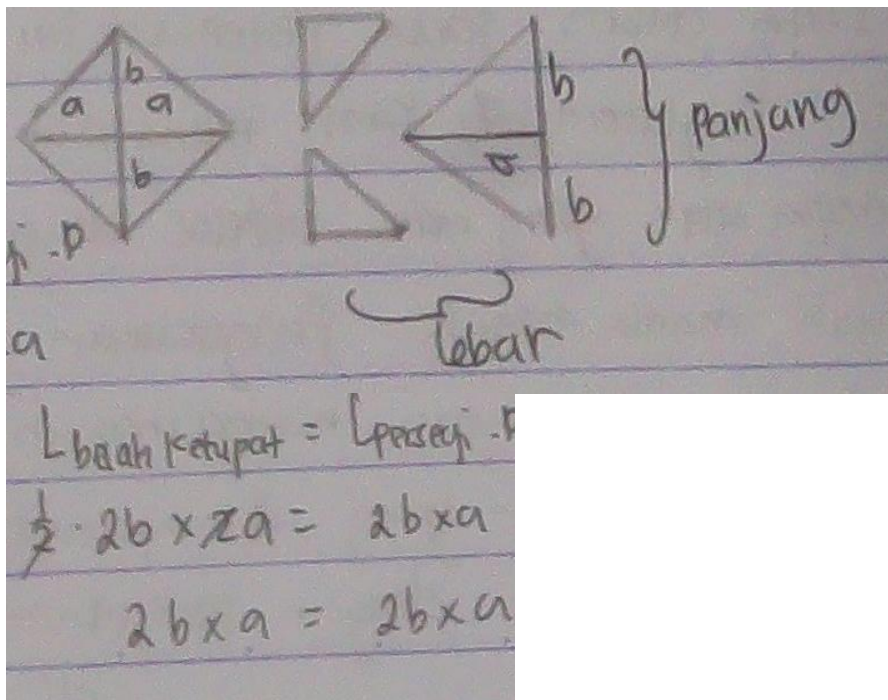 b
a a
b
b
a
b
Panjang
i . P
a
lebar
L belah Ketupat = L persegi . P
1/2 . 2b x 2a = 2b x a
2b x a = 2b x a